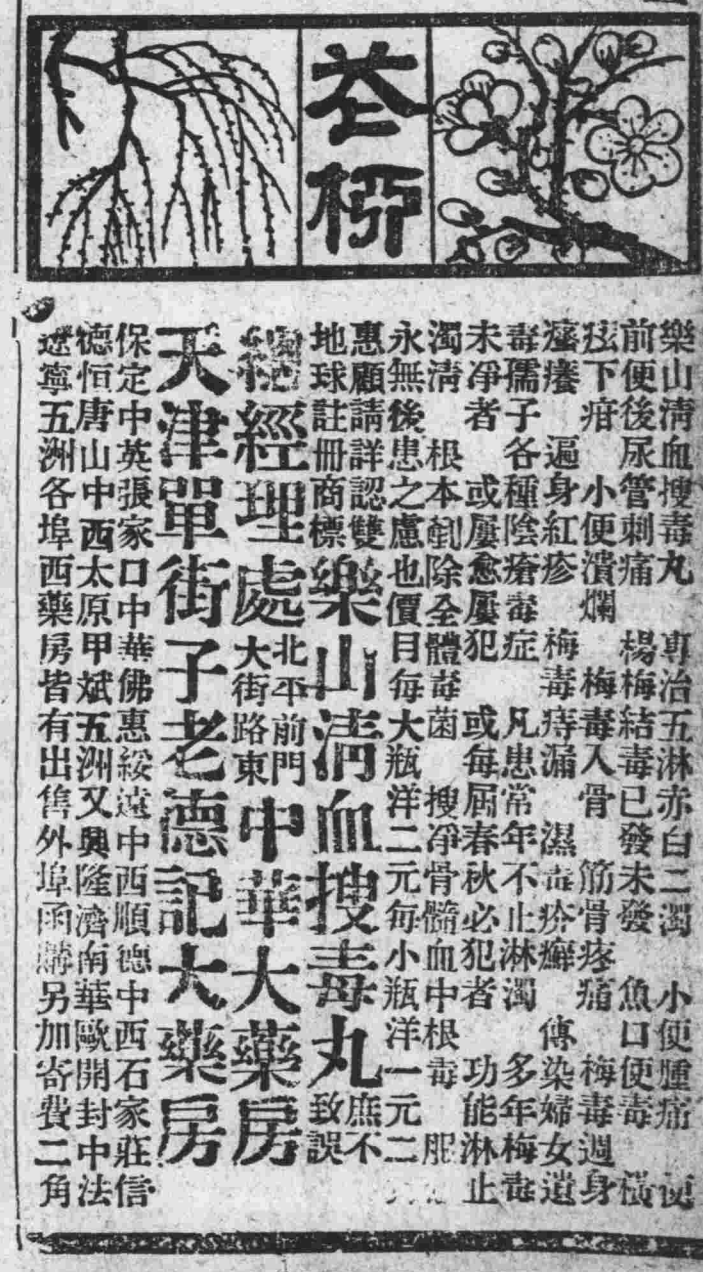 花柳
樂山淸血搜毒丸 專治五淋赤白二濁 小便腫痛 便
前便後尿管刺痛 楊梅結毒已發未發 魚口便毒 橫
痃下疳 小便潰爛 梅毒入骨 筋骨疼痛 梅毒週身
癢 遍身紅疹 梅毒痔漏 濕毒疥癬 傳染婦女遺
毒孺子各種陰瘡毒症 凡患常年不止淋濁 多年梅毒
未凈者 或屢愈屢犯 或每屆春秋必犯者 功能淋止
濁淸 根本剷除全體毒菌 搜凈骨髓血中根毒 服
永無後患之慮也價目每大瓶洋二元每小瓶洋一元二
惠顧請詳認雙
地球註冊商標
樂山淸血搜毒丸
庶不
致誤
總經理處
北平前門
大街路東
中華大藥房
天津單街子老德記大藥房
保定中英張家口中華佛惠綏遠中西順德中西石家莊信
德恒唐山中西太原甲斌五洲又興隆濟南華歐開封中法
遼寧五洲各埠西藥房皆有出售外埠函購另加寄費二角